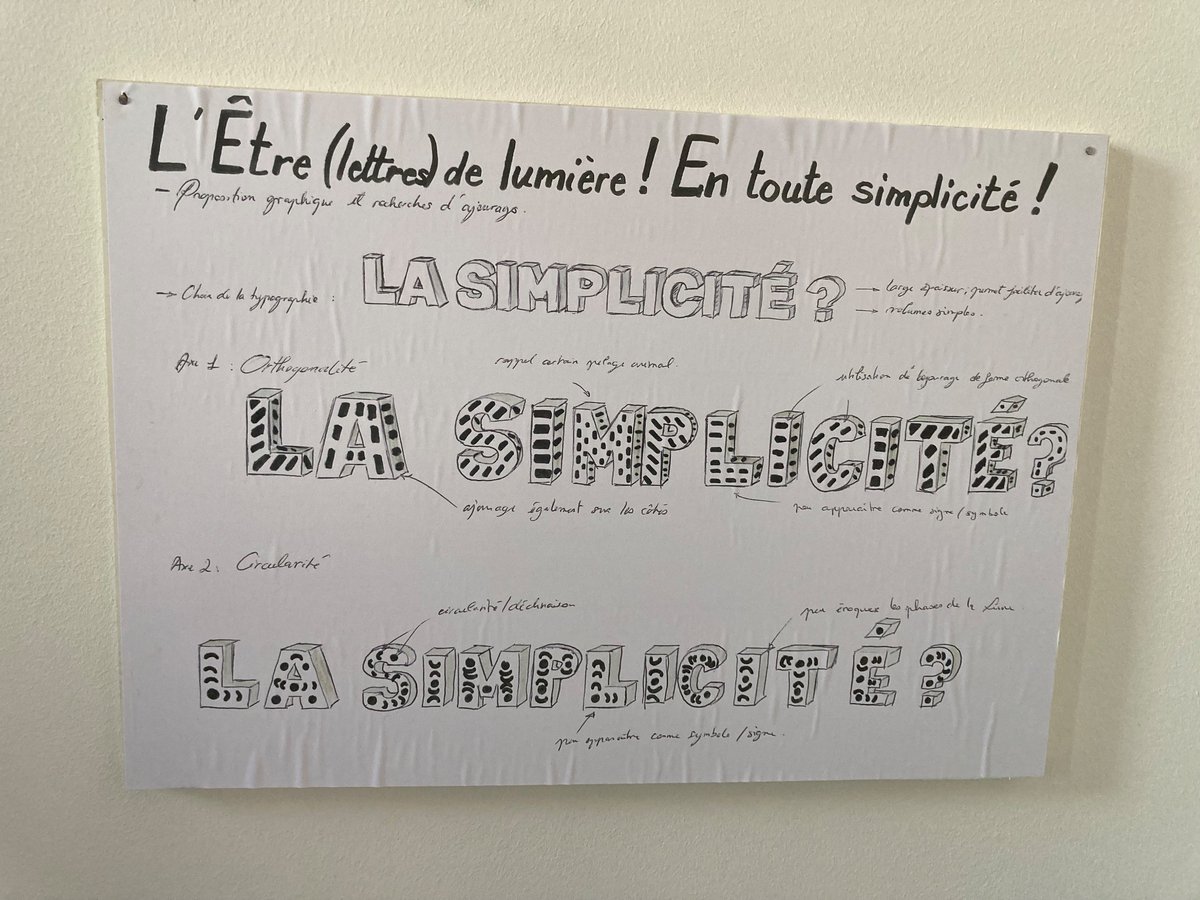 L'Être (lettres) de lumière ! En toute simplicité !
– Proposition graphique et recherches d'ajourage.
LA SIMPLICITÉ ?
→ Choix de la typographie :
→ large épaisseur, permet d'ajourer
→ volumes simples.
Axe 1 : Orthogonalité
rappel certain pelage animal.
utilisation de forme orthogonale
LA SIMPLICITÉ ?
ajourage également sur les côtés
peu apparaître comme signe / symbole
Axe 2 : Circularité
circularité / déclinaison
peu évoquer les phases de la Lune.
LA SIMPLICITÉ ?
peu apparaître comme symbole / signe.